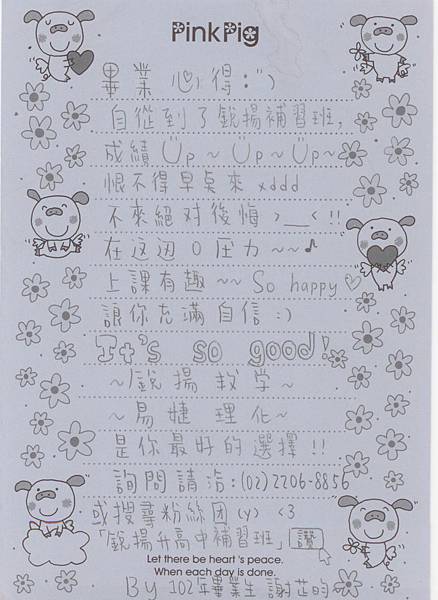 PinkPig
畢業心得:")
自從到了銳揚補習班,
成績Üp~Üp~Üp~
恨不得早桌來 xddd
不來絕对後悔 >__< !!
在这边 0 压力~~♪
上課有趣~~So happy♡
讓你充滿自信:)
It's so good!
~銳揚教学~
~易婕理化~
是你最好的選擇!!
詢問請洽:(02)2206-8856
或搜尋粉絲团(y) <3
「銳揚升高中補習班」讚
Let there be heart 's peace.
When each day is done.
By 102年畢業生 謝芷昀